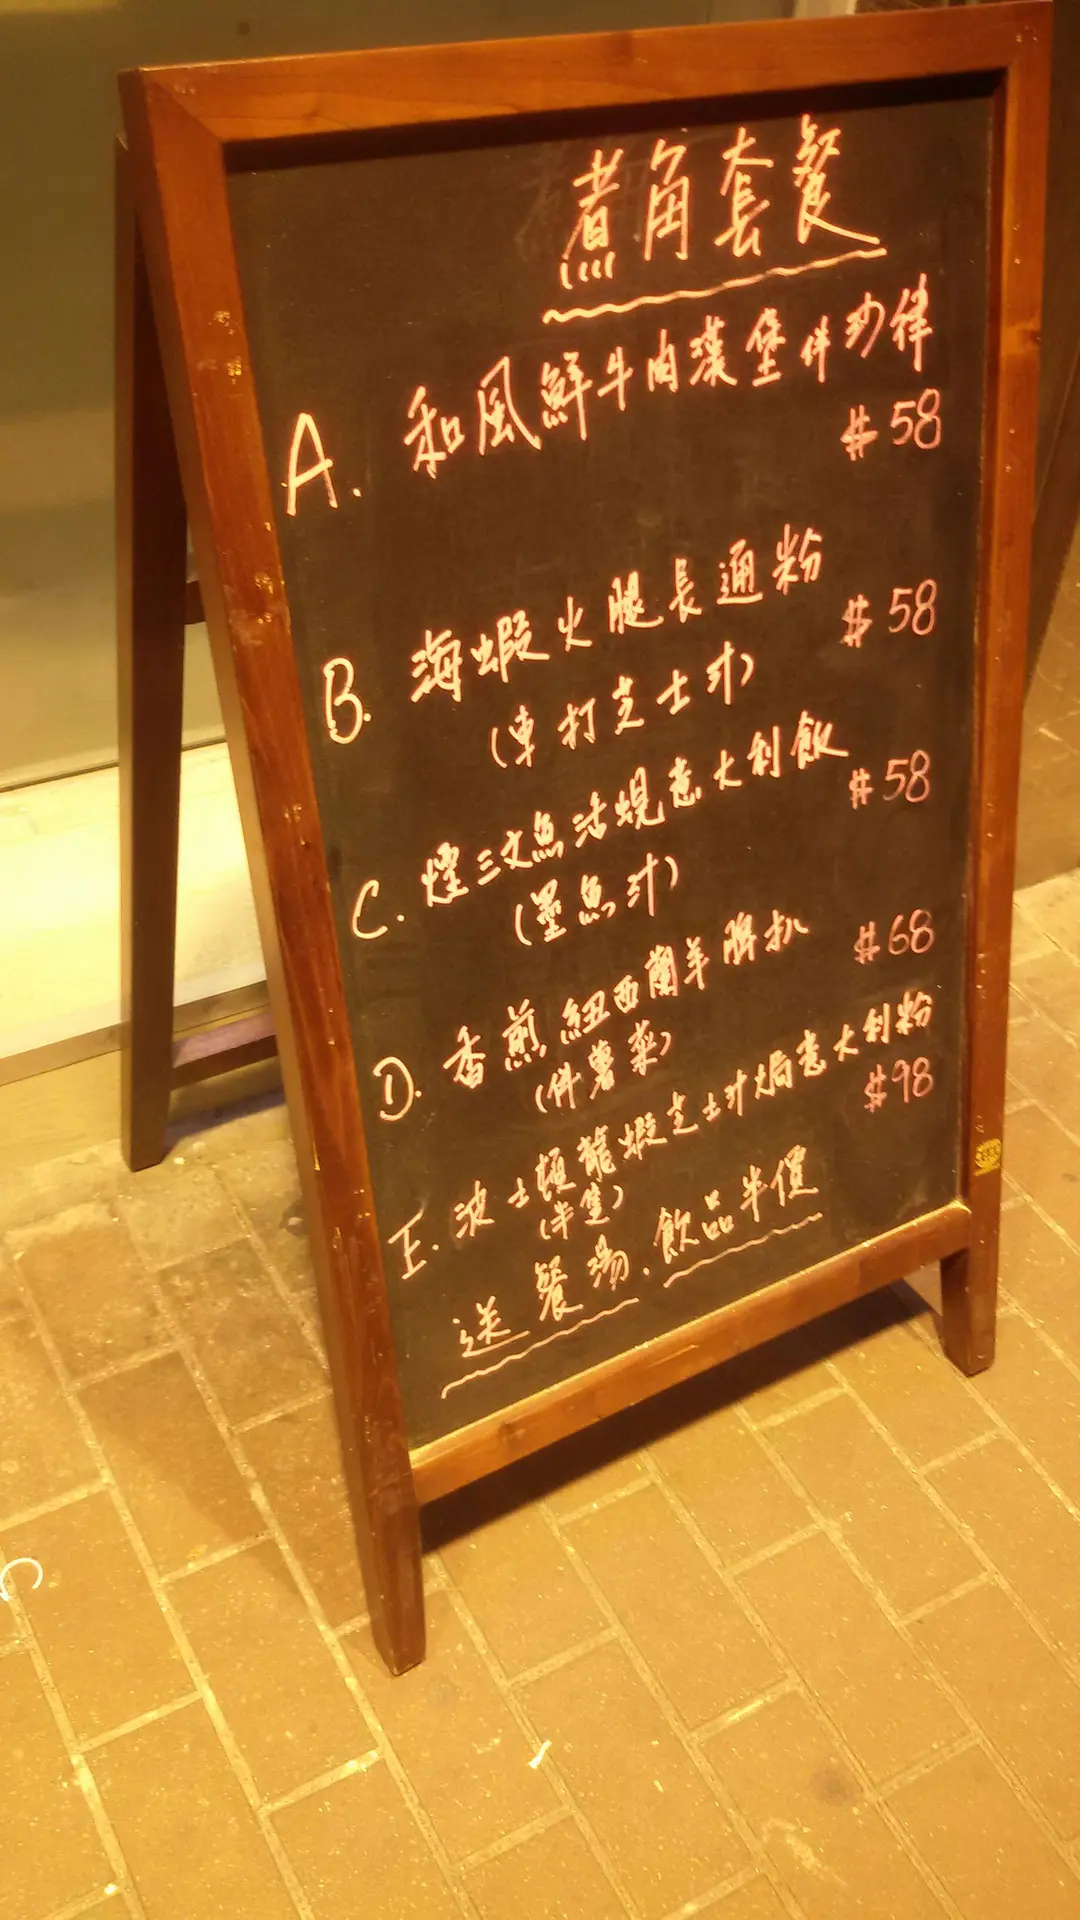 煮角套餐
A. 和風鮮牛肉漢堡伴沙律
$58
B. 海蝦火腿長通粉 $58
(車打芝士汁)
C. 煙三文魚活蜆意大利飯 $58
(墨魚汁)
D. 香煎紐西蘭羊脾扒 $68
(伴薯菜)
E. 波士頓龍蝦芝士汁焗意大利粉
(半隻) $98
送餐湯.飲品半價